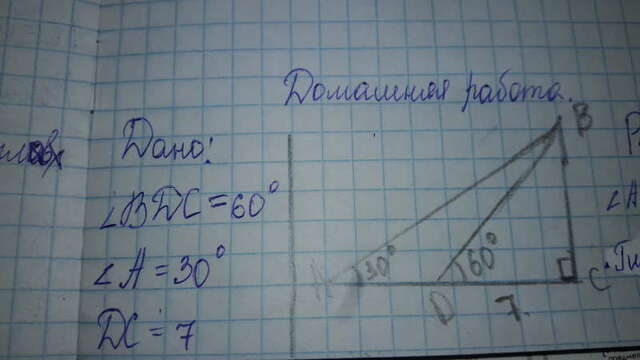 Домашняя работа.
Дано:
∠BDC = 60°
∠A = 30°
DC = 7
B
30°
60°
C
D
7
∠A